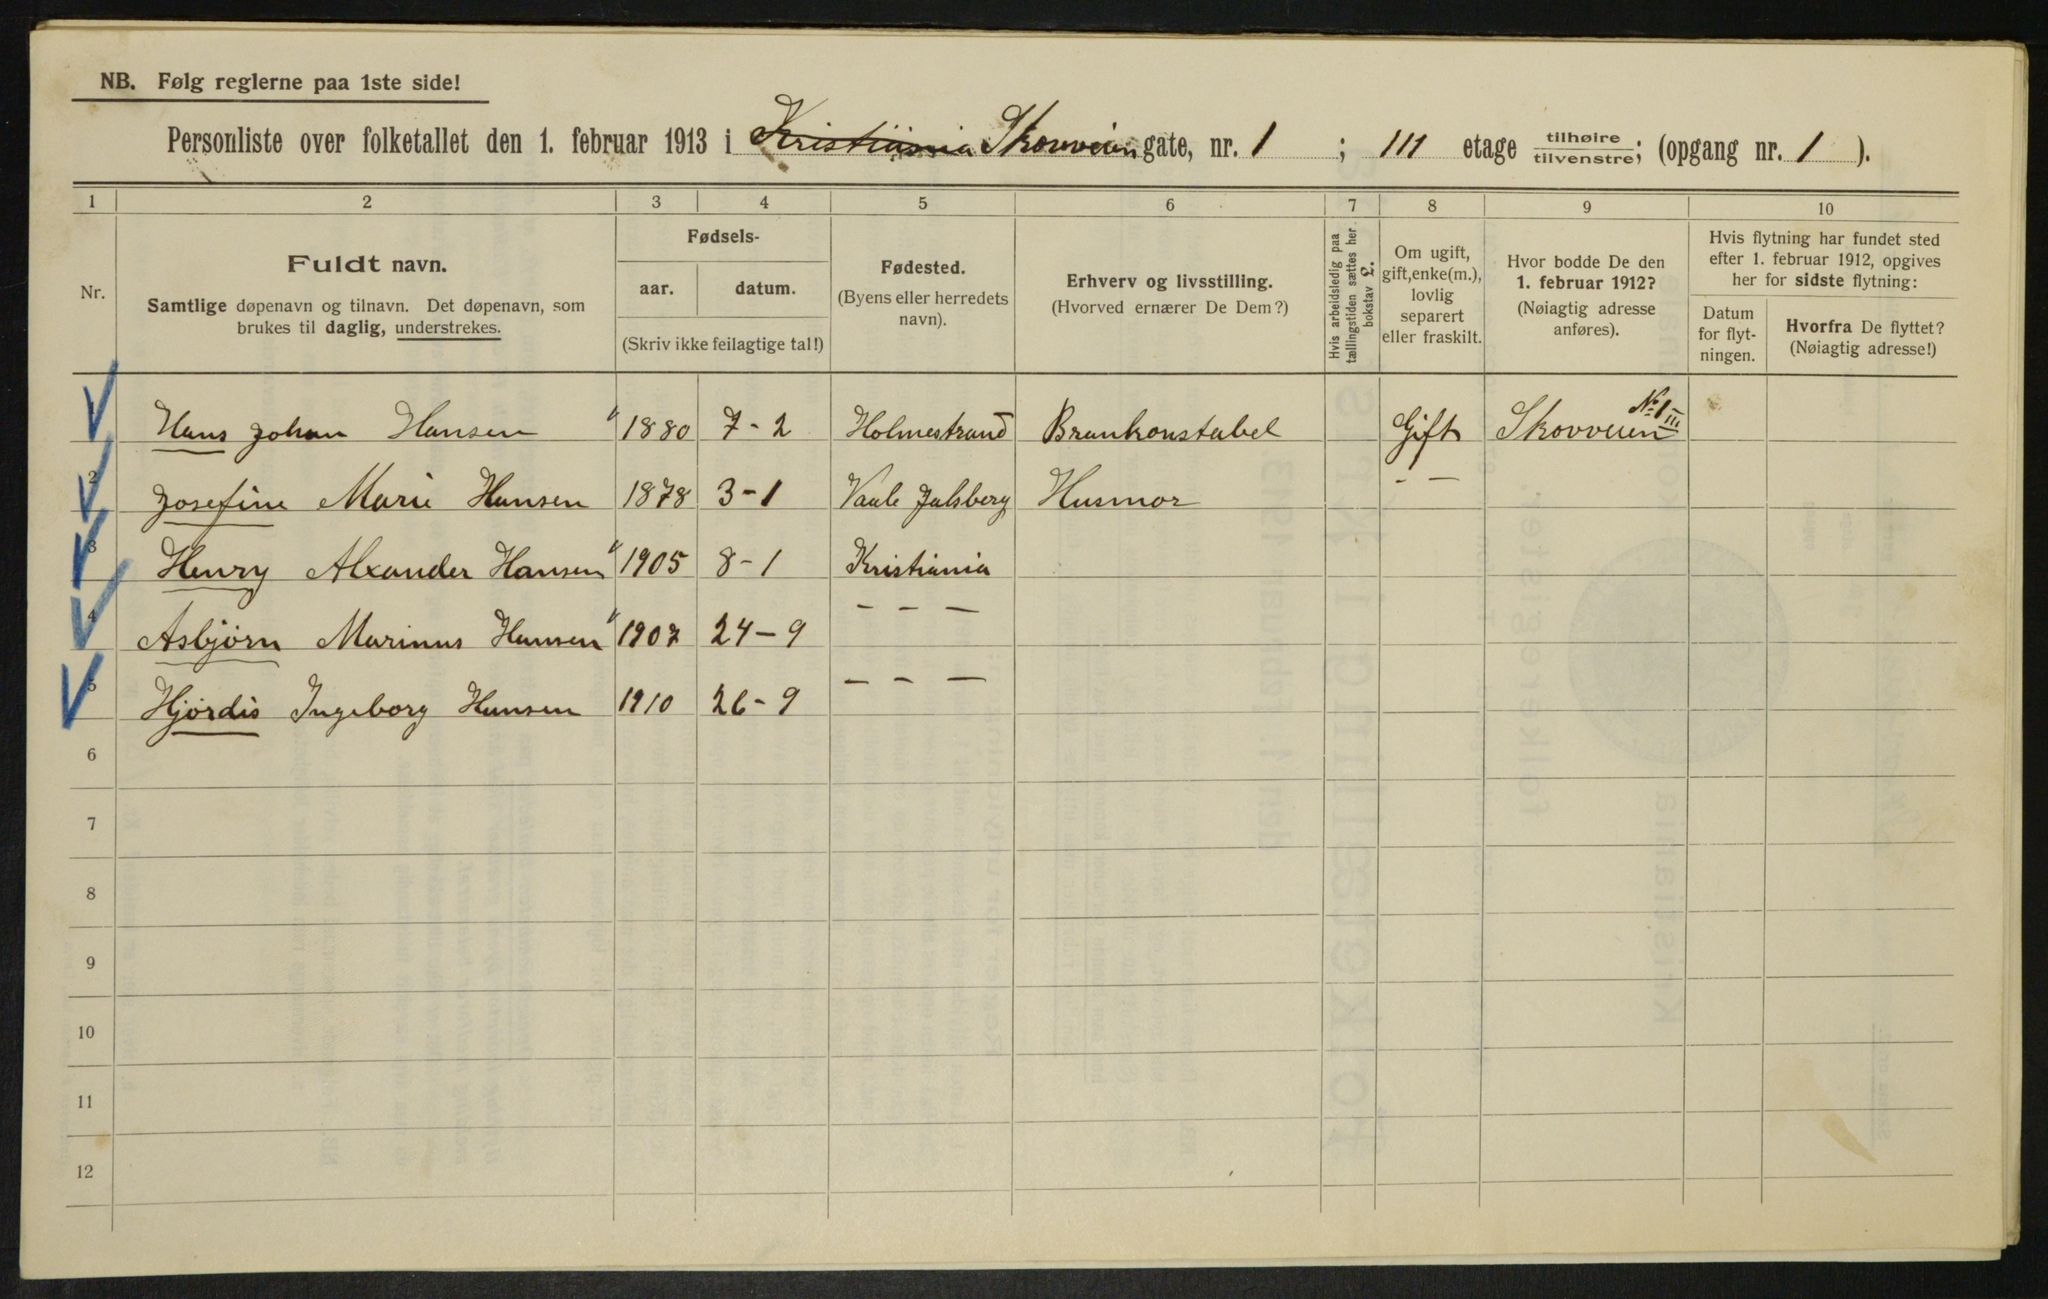 NB. Følg reglerne paa 1ste side!
Personliste over folketallet den 1. februar 1913 i Kristiania Skovveien gate, nr. 1 ; III etage tilhøire tilvenstre; (opgang nr. 1 ).
1 2 3 4 5 6 7 8 9 10
Nr.
Fuldt navn.
Samtlige døpenavn og tilnavn. Det døpenavn, som
brukes til daglig, understrekes.
Fødsels-
aar. datum.
(Skriv ikke feilagtige tal!)
Fødested.
(Byens eller herredets
navn).
Erhverv og livsstilling.
(Hvorved ernærer De Dem?)
Hvis arbeidsledig paa
tællingstiden sættes her
bokstav L.
Om ugift,
gift, enke(m.),
lovlig
separert
eller fraskilt.
Hvor bodde De den
1. februar 1912?
(Nøiagtig adresse
anføres).
Hvis flytning har fundet sted
efter 1. februar 1912, opgives
her for sidste flytning:
Datum
for flyt-
ningen.
Hvorfra De flyttet?
(Nøiagtig adresse!)
1 Hans Johan Hansen 1880 7-2 Holmestrand Brankonstabel Gift Skovveien No 1 III
2 Josefine Marie Hansen 1878 3-1 Vaale Jalsberg Husmor - -
3 Henry Alxander Hansen 1905 8-1 Kristiania
4 Asbjørn Marinus Hansen 1907 24-9 - - -
5 Hjørdis Ingeborg Hansen 1910 26-9 - - -
6
7
8
9
10
11
12